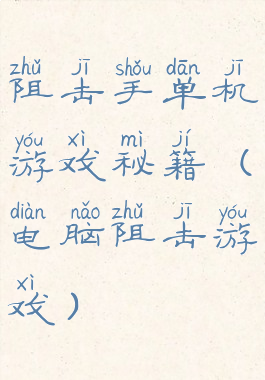 zhǔ jī shǒu dān jī
阻击手单机
yóu xì mì jí
游戏秘籍（
diàn nǎo zhǔ jī yóu
电脑阻击游
xì
戏）